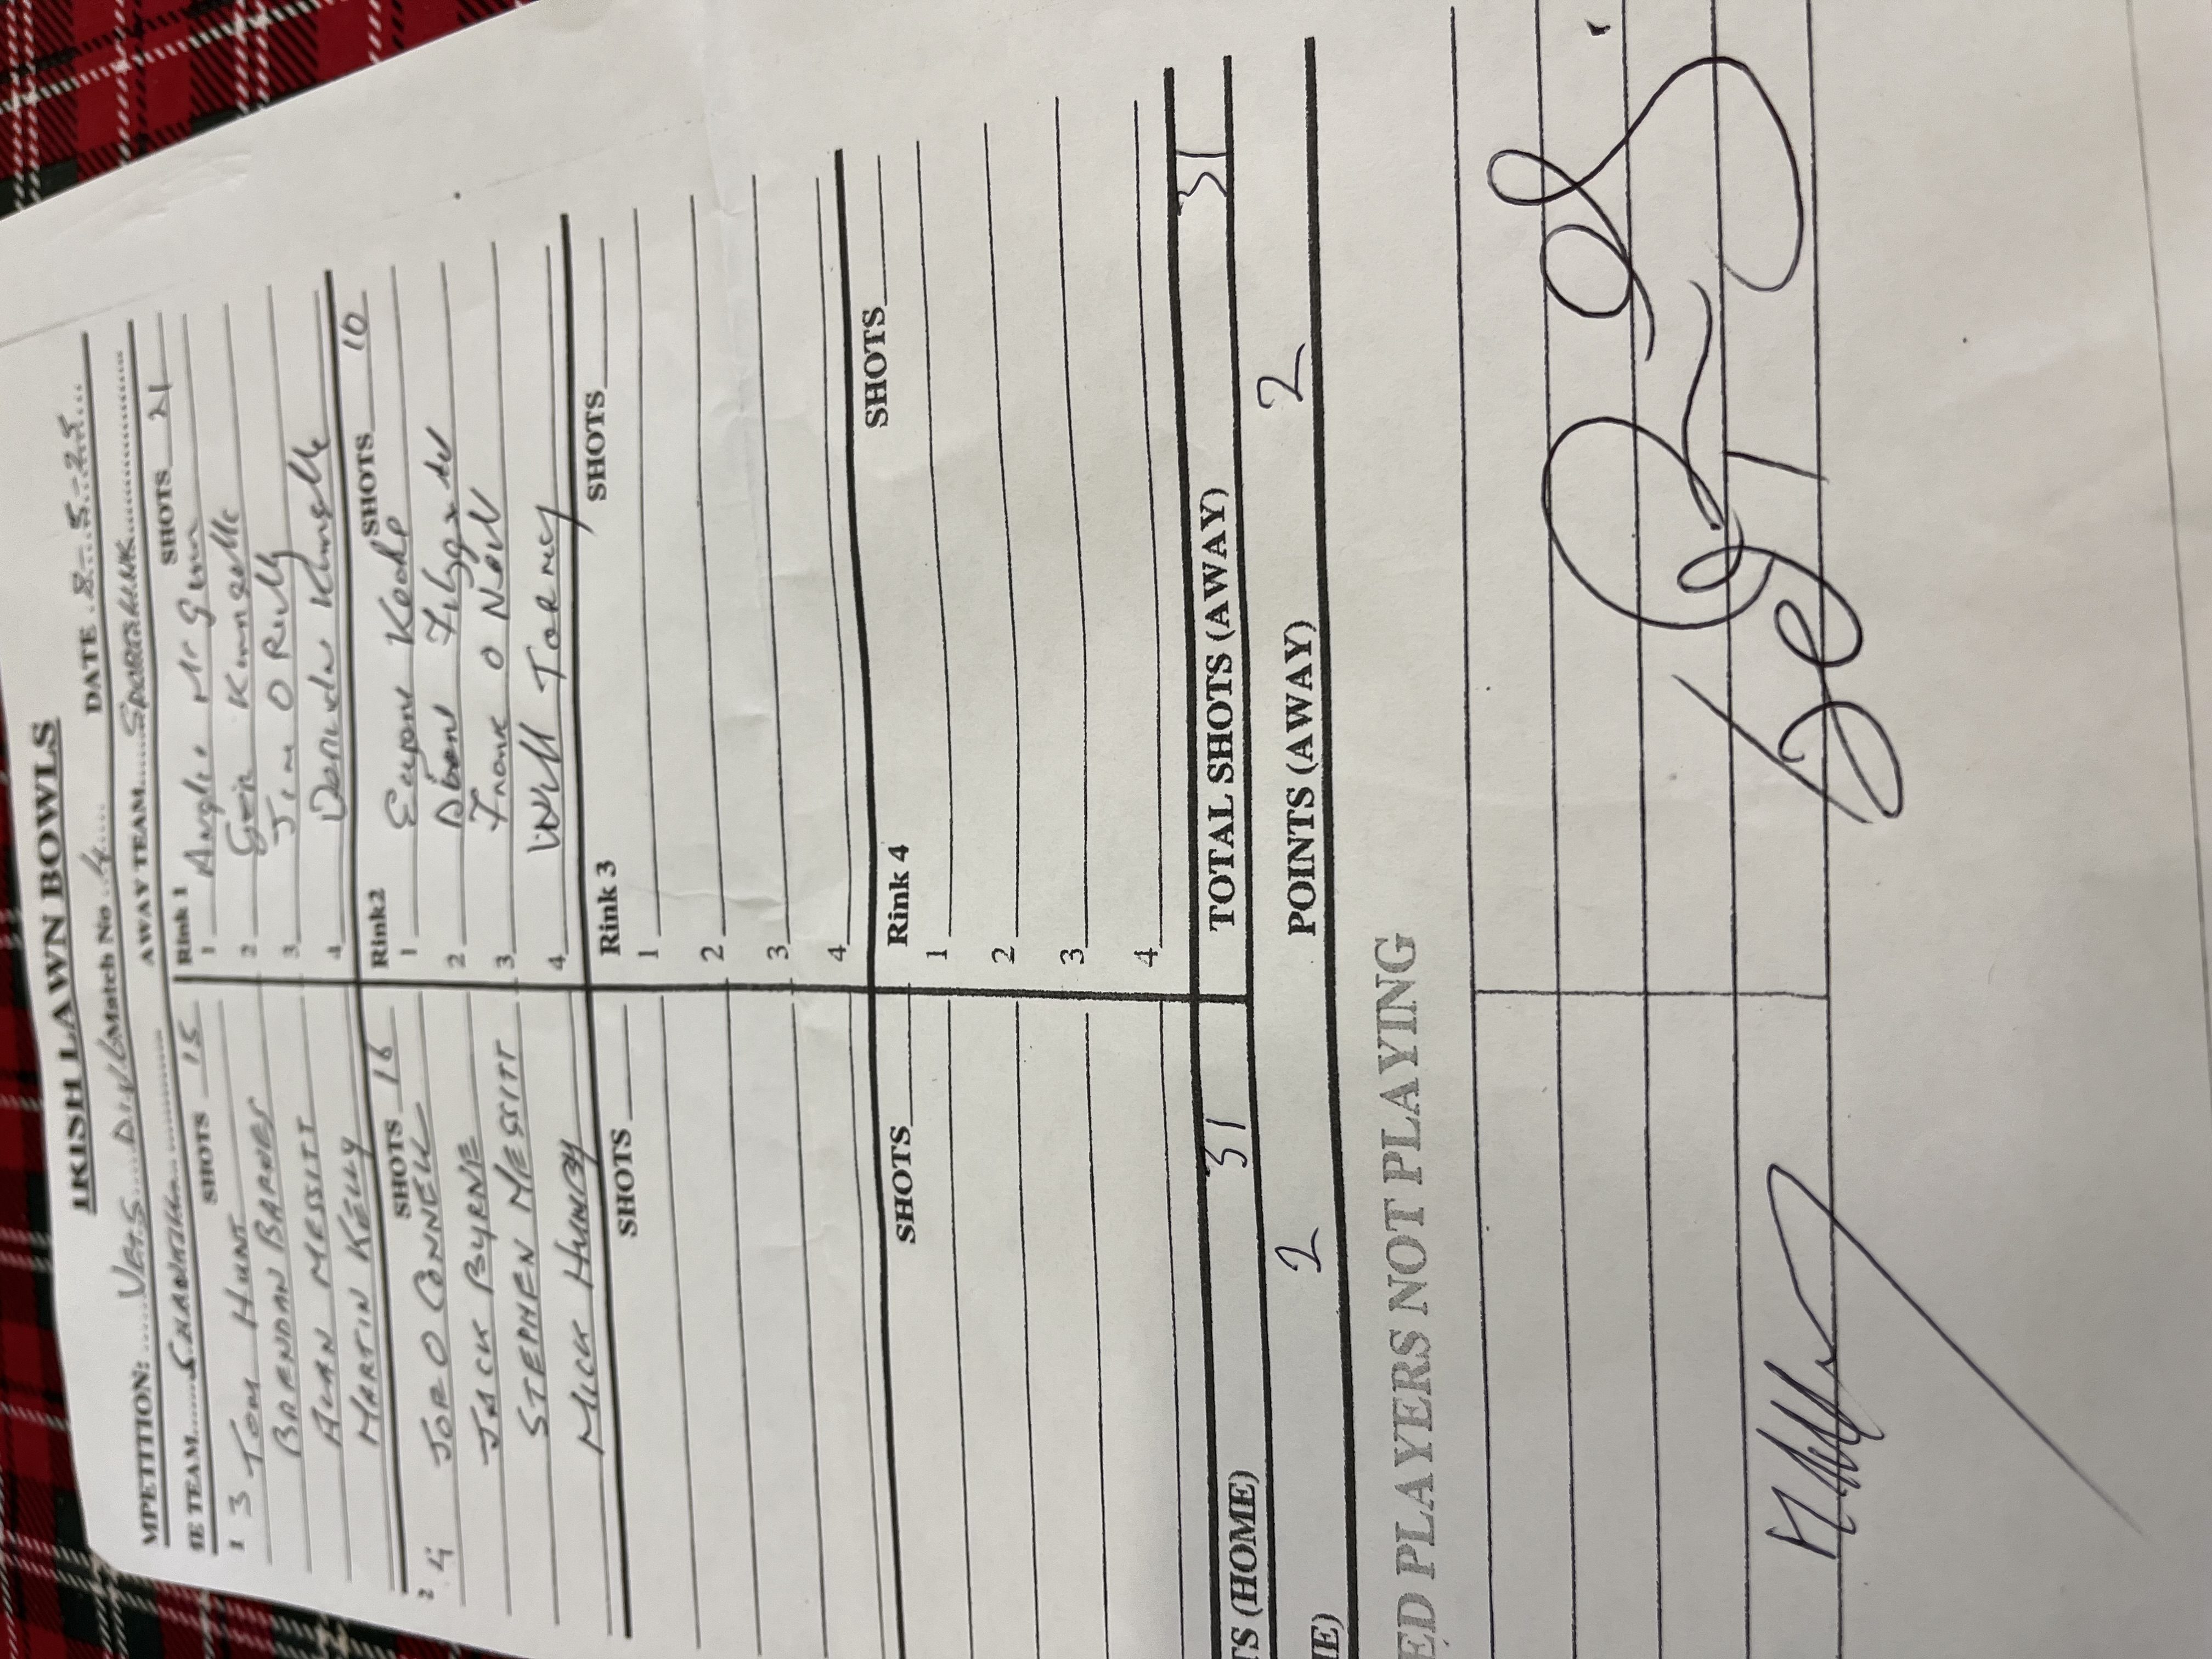 IRISH LAWN BOWLS
MPETITION: VETS DIV 6 Match No. 4 DATE 8-5-25
IE TEAM SHANKILL AWAY TEAM SPORTSLINK
SHOTS 15
Rink 1 SHOTS 21
1 3 TOM HUNT
1 Angie Mc Gunn
BRENDAN BARNES
2 Kinsella
ALAN MESSITT
3 Jim O Reilly
MARTIN KELLY
4 Kinsella
SHOTS 16
Rink2 SHOTS 10
2 4 JOE O CONNELL
1 Keode
JACK BYRNE
2
STEPHEN MESSITT
3 Frank O Neill
MICK HUMBY
4 Will Tormey
SHOTS
Rink 3 SHOTS
1
2
3
4
SHOTS
Rink 4 SHOTS
1
2
3
4
TS (HOME) 31 TOTAL SHOTS (AWAY) 31
IE) 2 POINTS (AWAY) 2
ED PLAYERS NOT PLAYING